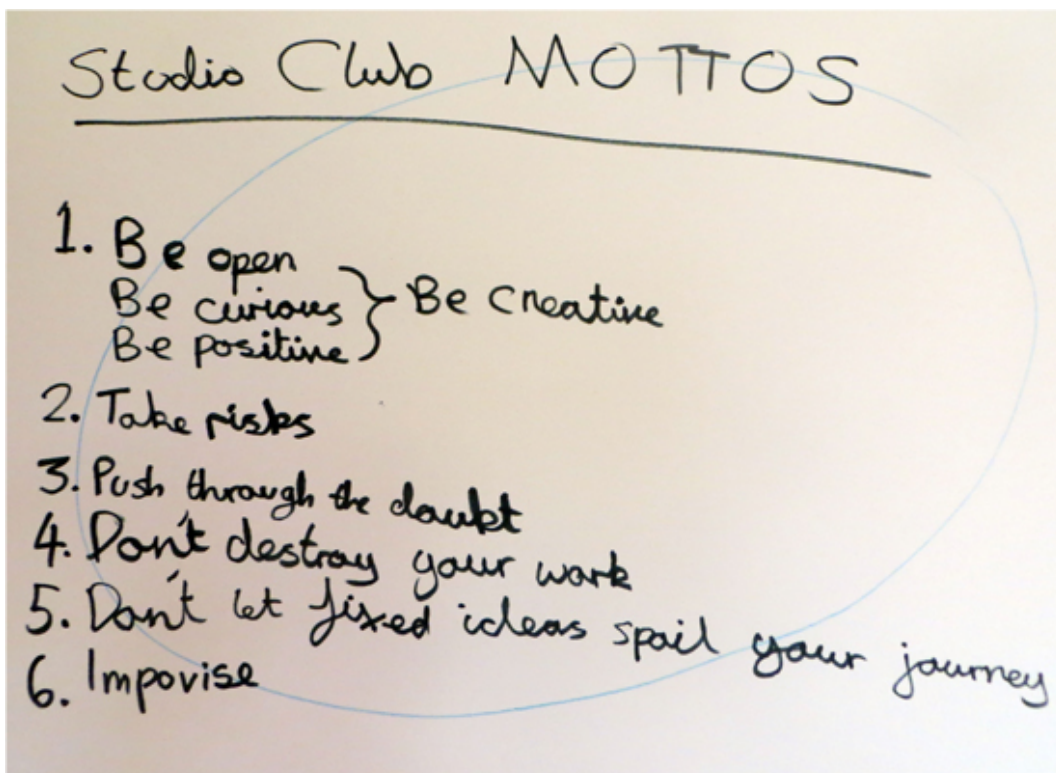 Studio Club MOTTOS
1. Be open
Be curious } Be Creative
Be positive
2. Take risks
3. Push through the doubt
4. Don't destroy your work
5. Don't let fixed ideas spoil your journey
6. Impovise